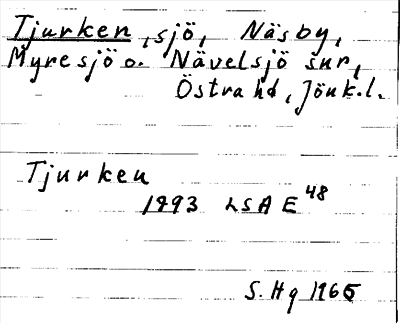 Tjurken, sjö, Näsby,
Myresjö o. Nävelsjö snr,
Östra hd, Jönk.l.
Tjurken
1893 LSA E 48
S. Hg 1965